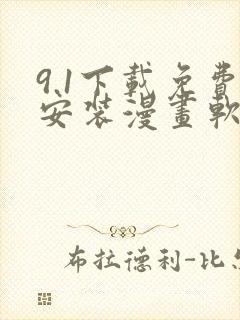 9.1下載免費
安装漫畫軟
布拉德利-比